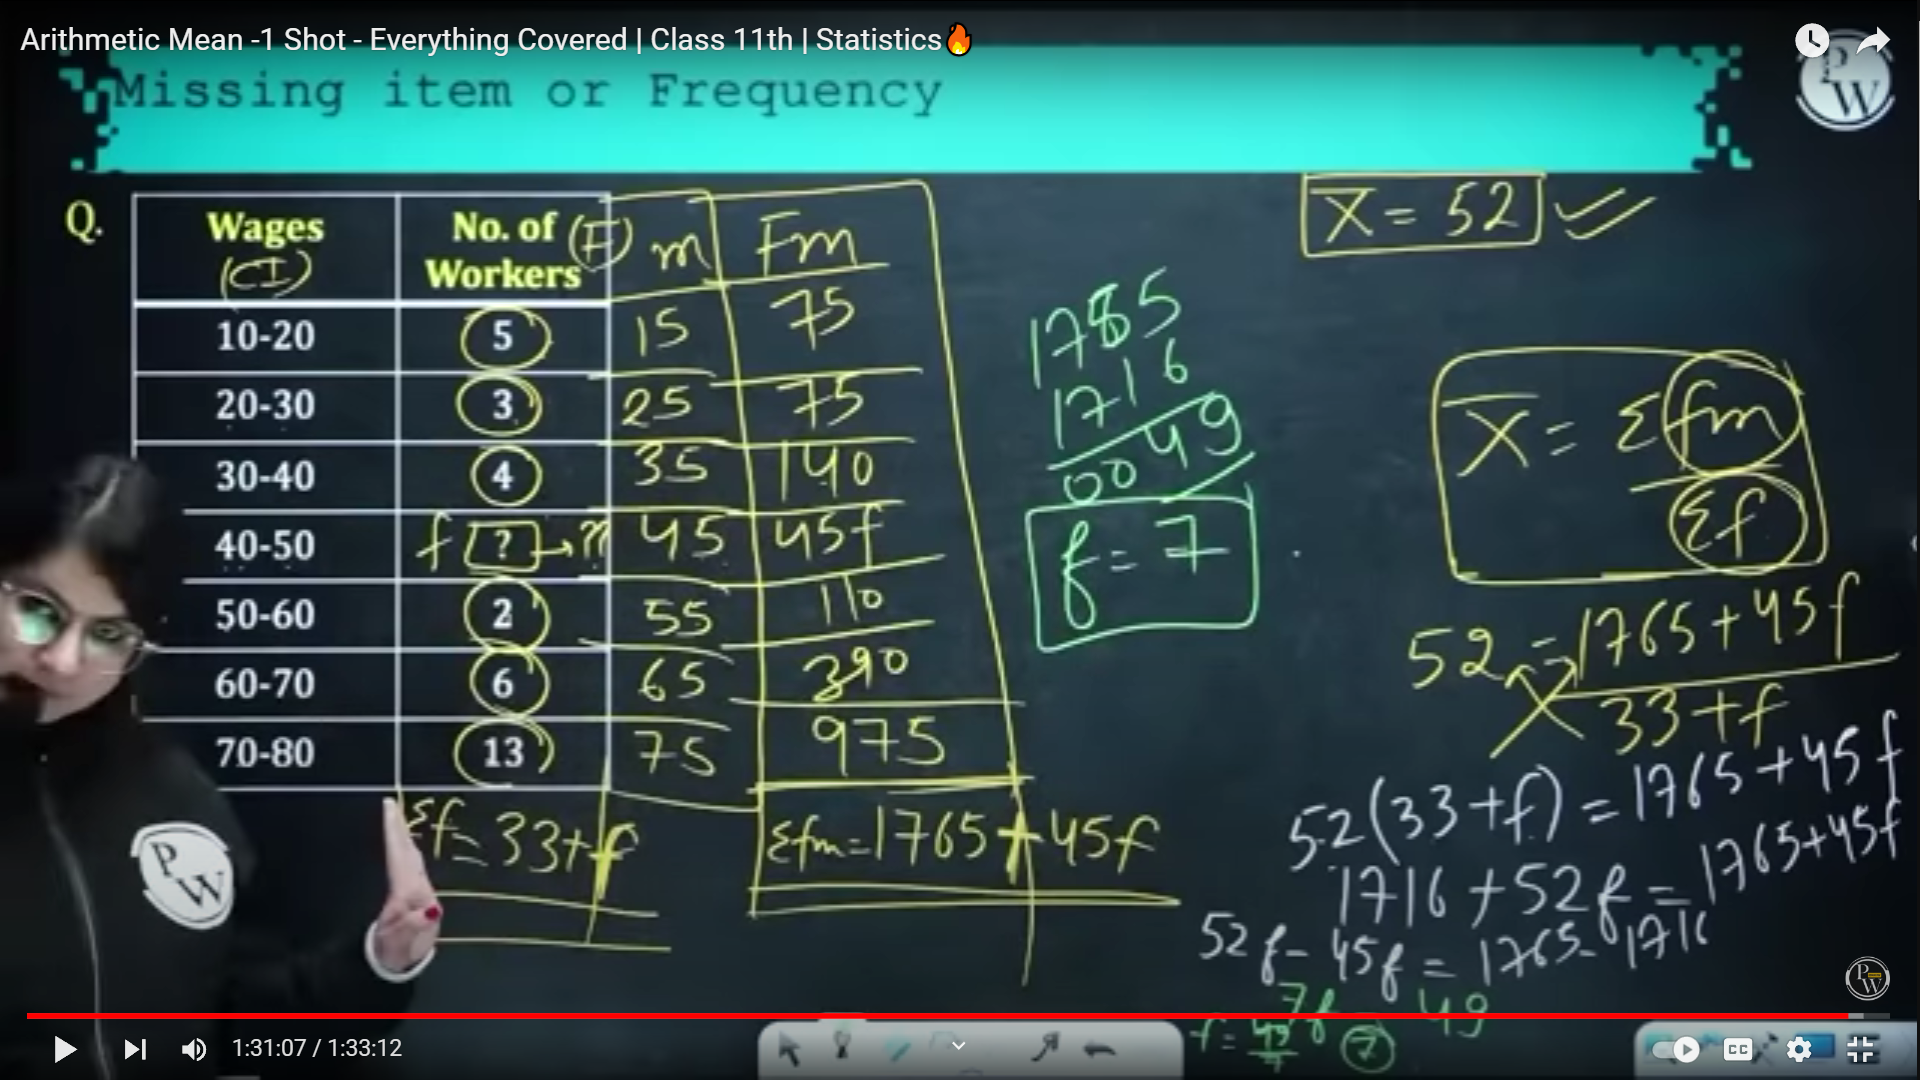 Arithmetic Mean -1 Shot - Everything Covered | Class 11th | Statistics🔥
Missing item or Frequency
P W
X̅ = 52
Q. Wages (CI) No. of Workers (F) m Fm
10-20 5 15 75
20-30 3 25 75
30-40 4 35 140
40-50 f ? → ?? 45 45f
50-60 2 55 110
60-70 6 65 390
70-80 13 75 975
Σf = 33+f Σfm = 1765 + 45f
1785
1716
0049
f = 7
X̅ = Σfm / Σf
52 = 1765+45f / 33+f
52(33+f) = 1765+45f
1716 + 52f = 1765+45f
52f - 45f = 1765 - 1716
7f 49
f = 49/7 7
P W
P W
1:31:07 / 1:33:12
CC